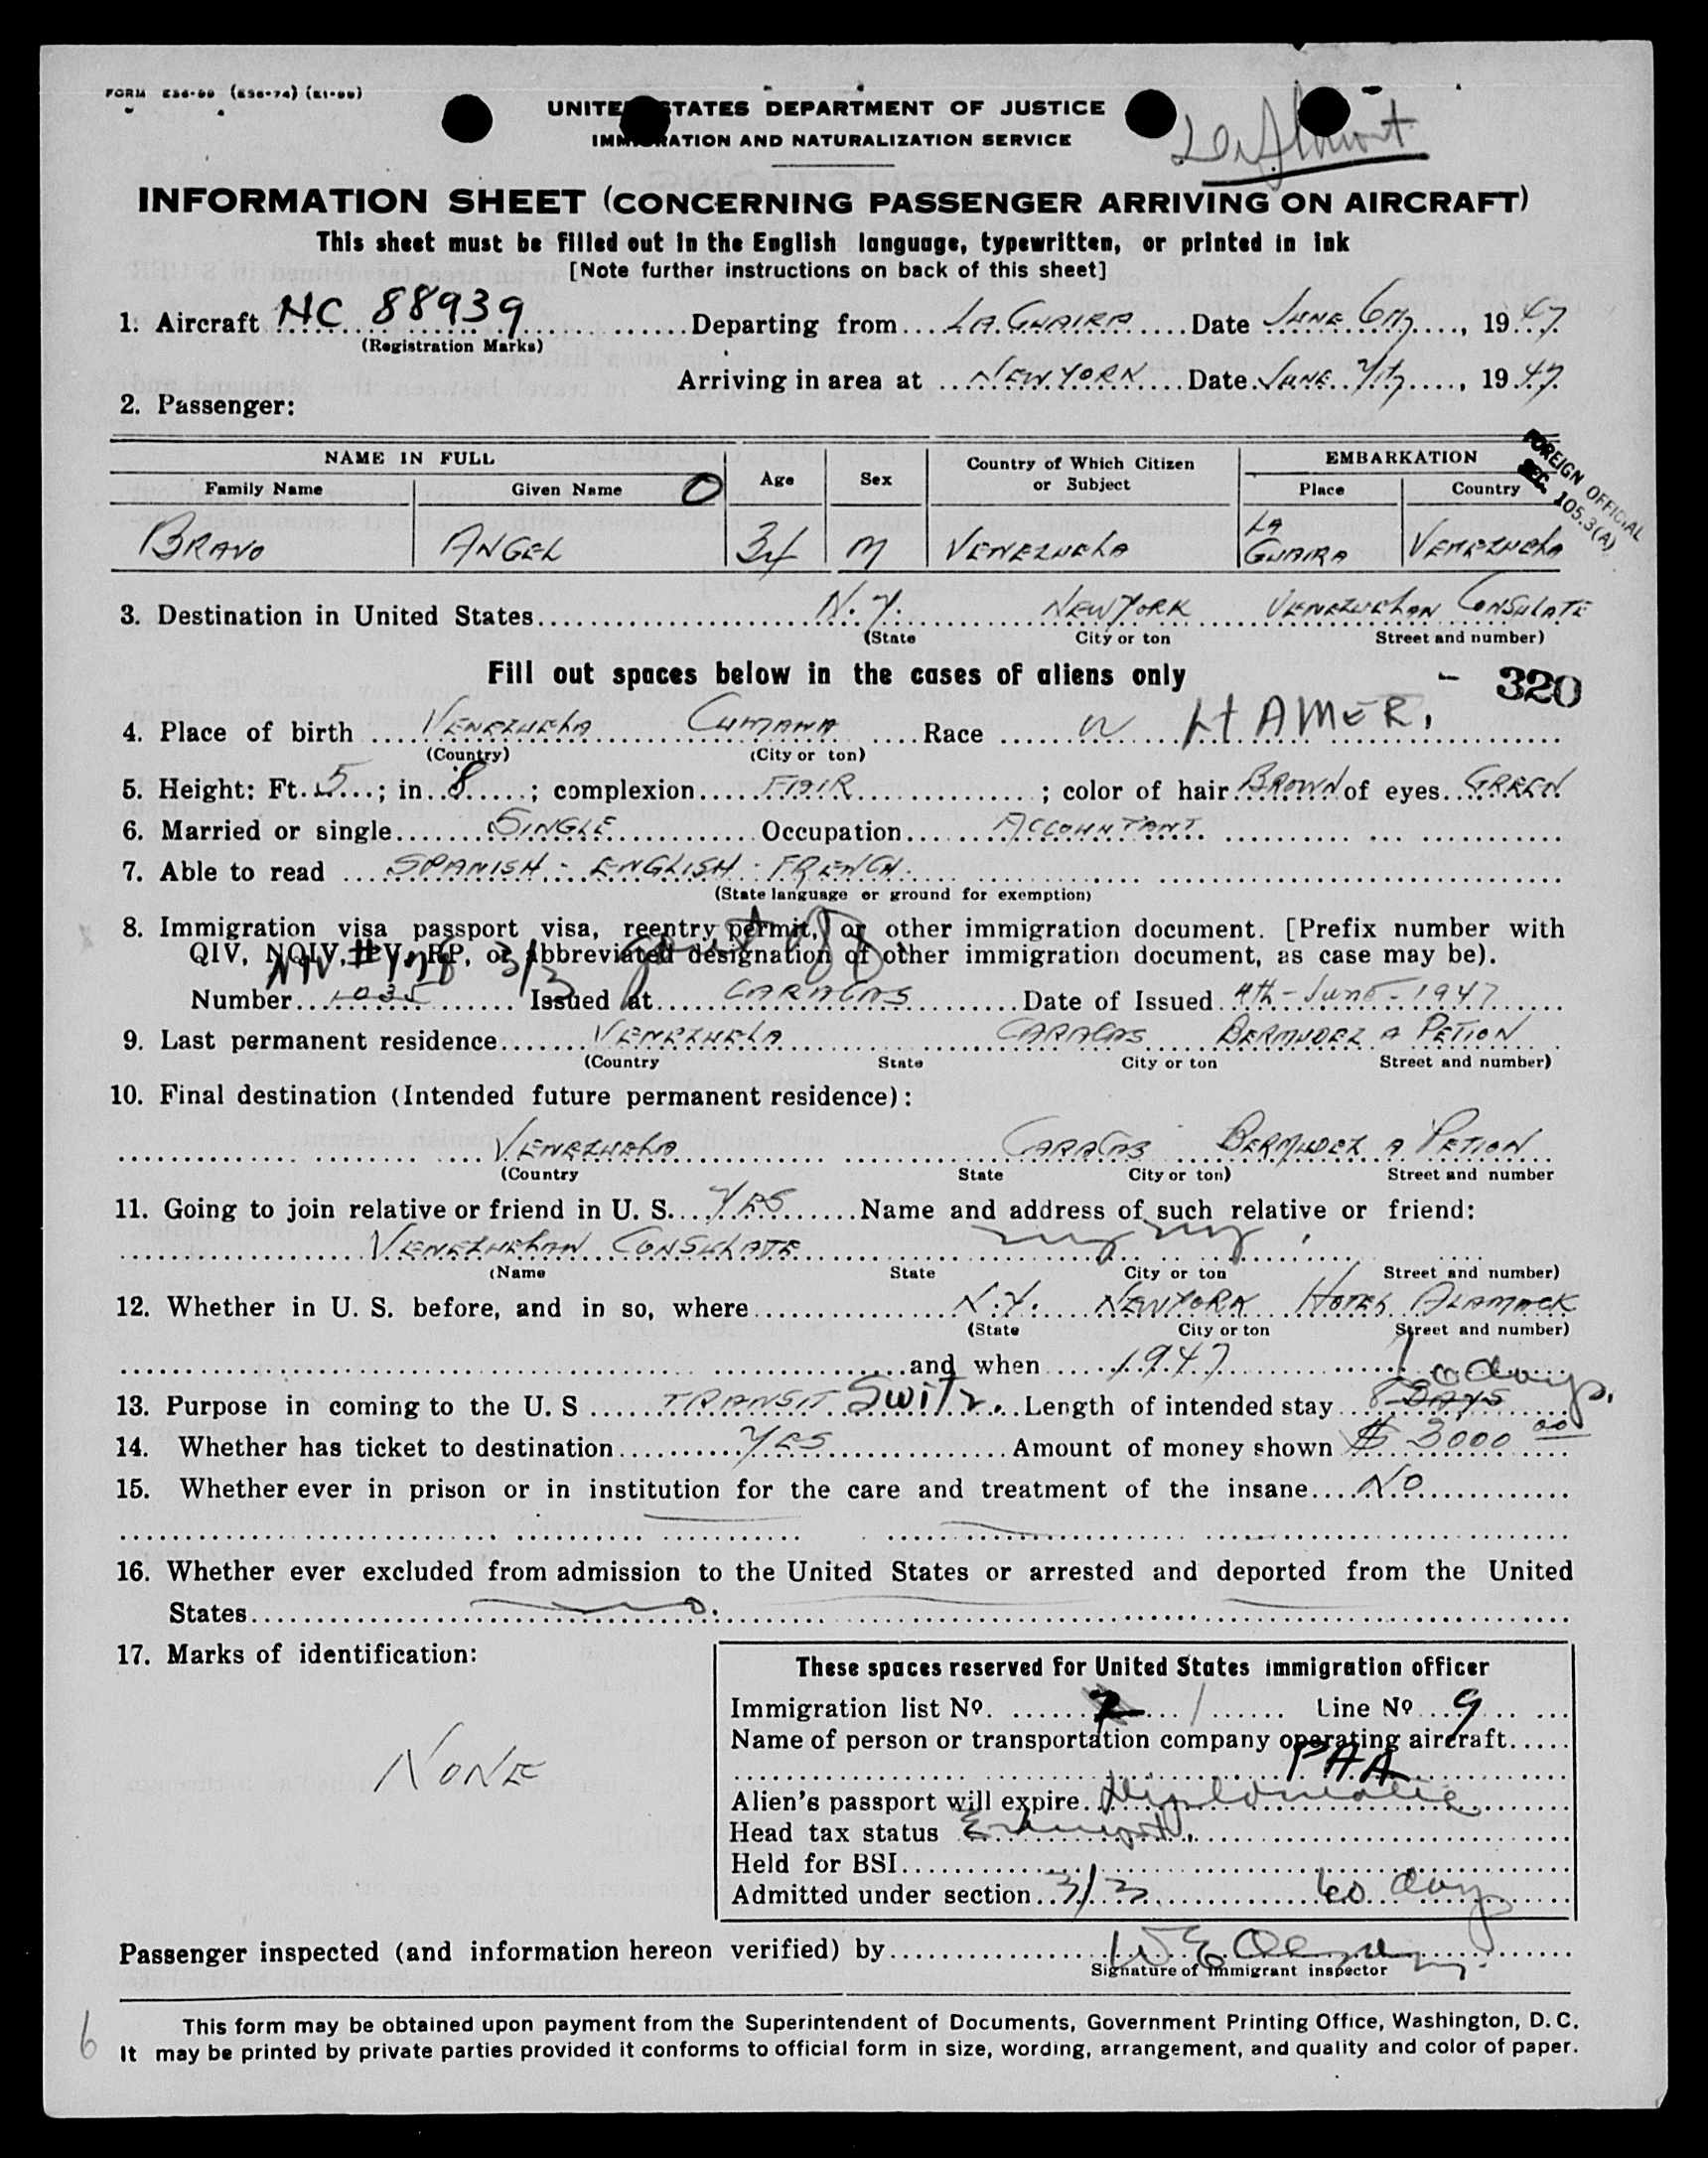 UNITED STATES DEPARTMENT OF JUSTICE
IMMIGRATION AND NATURALIZATION SERVICE
INFORMATION SHEET (CONCERNING PASSENGER ARRIVING ON AIRCRAFT)
This sheet must be filled out in the English language, typewritten, or printed in ink
[Note further instructions on back of this sheet]
1. Aircraft NC 88939 Departing from LA GUAIRA Date JUNE 6TH, 1947
(Registration Marks)
Arriving in area at NEW YORK Date JUNE 7TH, 1947
2. Passenger:
NAME IN FULL Age Sex Country of Which Citizen or Subject EMBARKATION
Family Name Given Name O Place Country
FOREIGN OFFICIAL
SEC. 105.3(A)
BRAVO ANGEL 34 M VENEZUELA LA GUAIRA VENEZUELA
3. Destination in United States N.Y. NEW YORK VENEZUELAN CONSULATE
(State City or ton Street and number)
Fill out spaces below in the cases of aliens only - 320
4. Place of birth VENEZUELA CUMANA Race W HAMER.
(Country) (City or ton)
5. Height: Ft. 5; in. 8; complexion FAIR; color of hair BROWN of eyes GREEN
6. Married or single SINGLE Occupation ACCOUNTANT
7. Able to read SPANISH - ENGLISH - FRENCH
(State language or ground for exemption)
8. Immigration visa passport visa, reentry permit, or other immigration document. [Prefix number with
QIV, NQIV, PV, RP, or abbreviated designation of other immigration document, as case may be).
NIV 3/3 govt off
Number 1035 Issued at CARACAS Date of Issued 4th - June - 1947
9. Last permanent residence VENEZUELA CARACAS BERMUDEZ A PETION
(Country State City or ton Street and number)
10. Final destination (Intended future permanent residence):
VENEZUELA CARACAS BERMUDEZ A PETION
(Country State City or ton) Street and number
11. Going to join relative or friend in U. S. YES Name and address of such relative or friend:
VENEZUELAN CONSULATE ny ny
(Name State City or ton Street and number)
12. Whether in U. S. before, and in so, where N.Y. NEW YORK HOTEL ALAMACK
(State City or ton Street and number)
and when 1947
60 days.
13. Purpose in coming to the U. S TRANSIT Switz. Length of intended stay 8 DAYS
14. Whether has ticket to destination YES Amount of money shown $ 3000 00
15. Whether ever in prison or in institution for the care and treatment of the insane NO
16. Whether ever excluded from admission to the United States or arrested and deported from the United
States no.
17. Marks of identification:
NONE
These spaces reserved for United States immigration officer
Immigration list No. 2 1 Line No 9
Name of person or transportation company operating aircraft
PAA
Alien's passport will expire. Diplomatic
Head tax status Exempt.
Held for BSI
Admitted under section 3/3 60 days
Passenger inspected (and information hereon verified) by
Signature of Immigrant inspector
This form may be obtained upon payment from the Superintendent of Documents, Government Printing Office, Washington, D. C.
6 It may be printed by private parties provided it conforms to official form in size, wording, arrangement, and quality and color of paper.